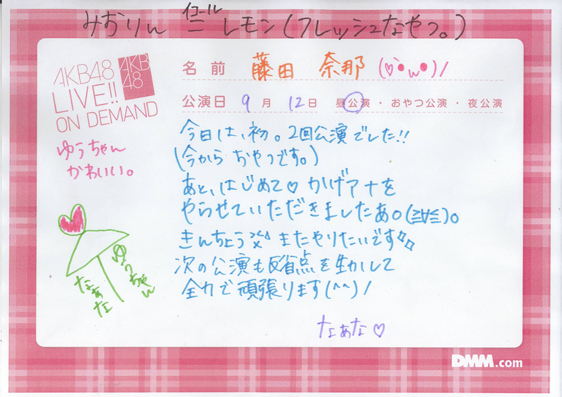 みおりん イコール = レモン(フレッシュなやつ。)
AKB48
LIVE!!
ON DEMAND
AKB
48
名前 藤田 奈那
公演日 9月 12日 昼公演・おやつ公演・夜公演
今日は、初。2回公演でした!!
(今から おやつです。)
あと、はじめて♡ かげアナを
やらせていただきましたあ。(≧∀≦)。
きんちょう またやりたいです
次の公演も反省点を生かして
全力で頑張ります(^^)!
なぁな♡
ゆうちゃん
かわいい。
ゆうちゃん
なぁな
DMM.com